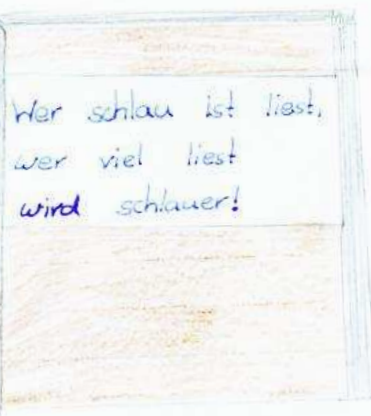 Wer schlau ist liest,
wer viel liest
wird schlauer!